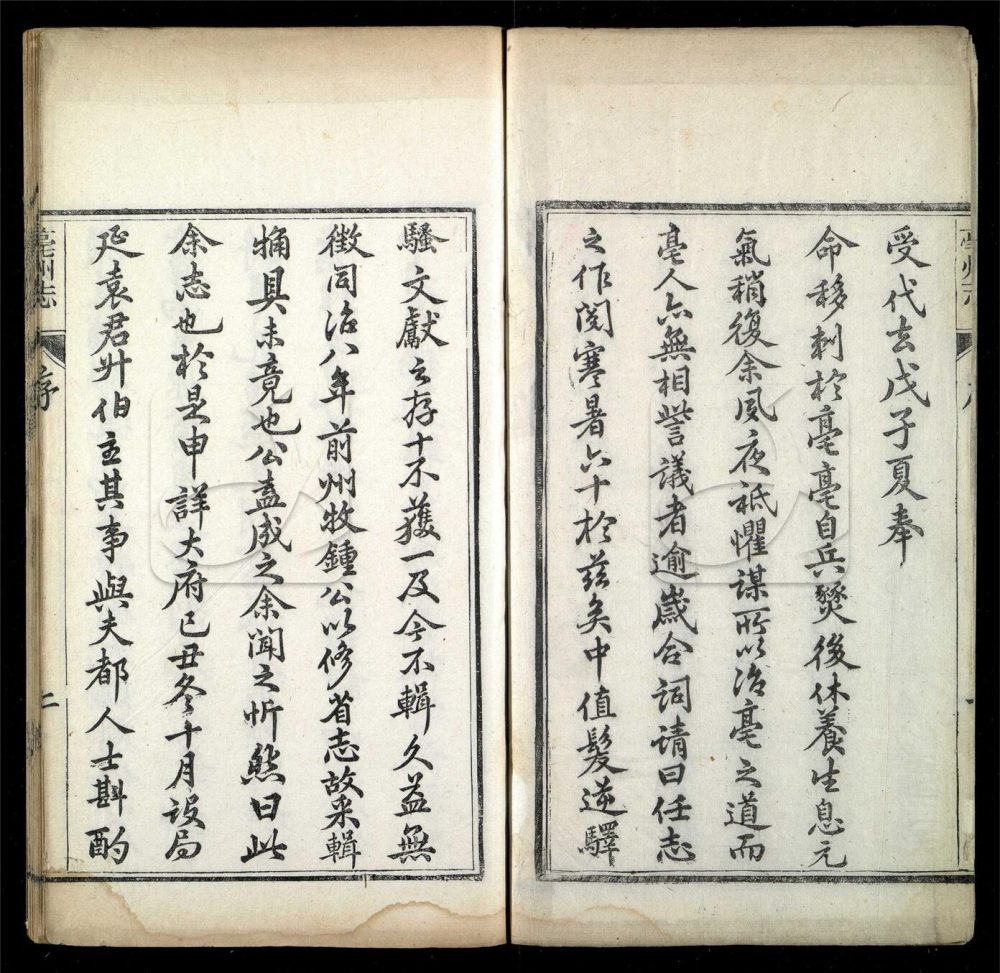 受代去戊子夏奉
命移刺於亳亳自兵燹後休養生息元
氣稍復余夙夜祗懼謀所以治亳之道而
亳人亦無相訾議者逾歲合詞请曰任志
之作閱寒暑六十於兹矣中值髮逆驛
騷文獻之存十不獲一及今不輯久益無
徵同治八年前州牧鍾公以修省志故采輯
捅具未竟也公盍成之余聞之忻然曰此
余志也於是申詳大府己丑冬十月设局
延袁君卅伯主其事與夫都人士斟酌
亳州志
序
二